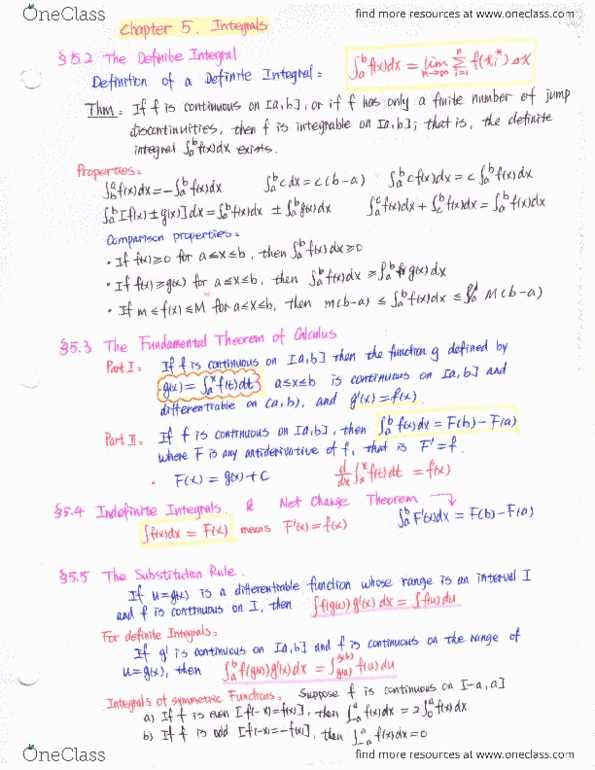 OneClass
find more resources at www.oneclass.com
Chapter 5. Integrals
§5.2 The Definite Integral
Definition of a Definite Integral: ∫_a^b f(x)dx = lim_{n→∞} Σ_{i=1}^n f(x_i*) Δx
Thm: If f is continuous on [a,b], or if f has only a finite number of jump
discontinuities, then f is integrable on [a,b]; that is, the definite
integral ∫_a^b f(x)dx exists.
Properties:
∫_b^a f(x)dx = -∫_a^b f(x)dx ∫_a^b c dx = c(b-a) ∫_a^b cf(x)dx = c∫_a^b f(x)dx
∫_a^b [f(x) ± g(x)]dx = ∫_a^b f(x)dx ± ∫_a^b g(x)dx ∫_a^c f(x)dx + ∫_c^b f(x)dx = ∫_a^b f(x)dx
Comparison properties:
• If f(x) ≥ 0 for a≤x≤b, then ∫_a^b f(x)dx ≥ 0
• If f(x) ≥ g(x) for a≤x≤b, then ∫_a^b f(x)dx ≥ ∫_a^b g(x)dx
• If m ≤ f(x) ≤ M for a≤x≤b, then m(b-a) ≤ ∫_a^b f(x)dx ≤ M(b-a)
§5.3 The Fundamental Theorem of Calculus
Part I: If f is continuous on [a,b] then the function g defined by
g(x) = ∫_a^x f(t)dt a≤x≤b is continuous on [a,b] and
differentiable on (a,b), and g'(x) = f(x).
Part II: If f is continuous on [a,b], then ∫_a^b f(x)dx = F(b) - F(a)
where F is any antiderivative of f, that is F' = f.
• F(x) = g(x) + C d/dx ∫_a^x f(t)dt = f(x)
§5.4 Indefinite Integrals & Net Change Theorem
∫f(x)dx = F(x) means F'(x) = f(x) ∫_a^b F'(x)dx = F(b) - F(a)
§5.5 The Substitution Rule.
If u=g(x) is a differentiable function whose range is an interval I
and f is continuous on I, then ∫f(g(x))g'(x)dx = ∫f(u)du
For definite Integrals:
If g' is continuous on [a,b] and f is continuous on the range of
u=g(x), then ∫_a^b f(g(x))g'(x)dx = ∫_{g(a)}^{g(b)} f(u)du
Integrals of symmetric Functions: Suppose f is continuous on [-a,a]
a) If f is even [f(-x)=f(x)], then ∫_{-a}^a f(x)dx = 2∫_0^a f(x)dx
b) If f is odd [f(-x)=-f(x)], then ∫_{-a}^a f(x)dx = 0
OneClass
find more resources at www.oneclass.com